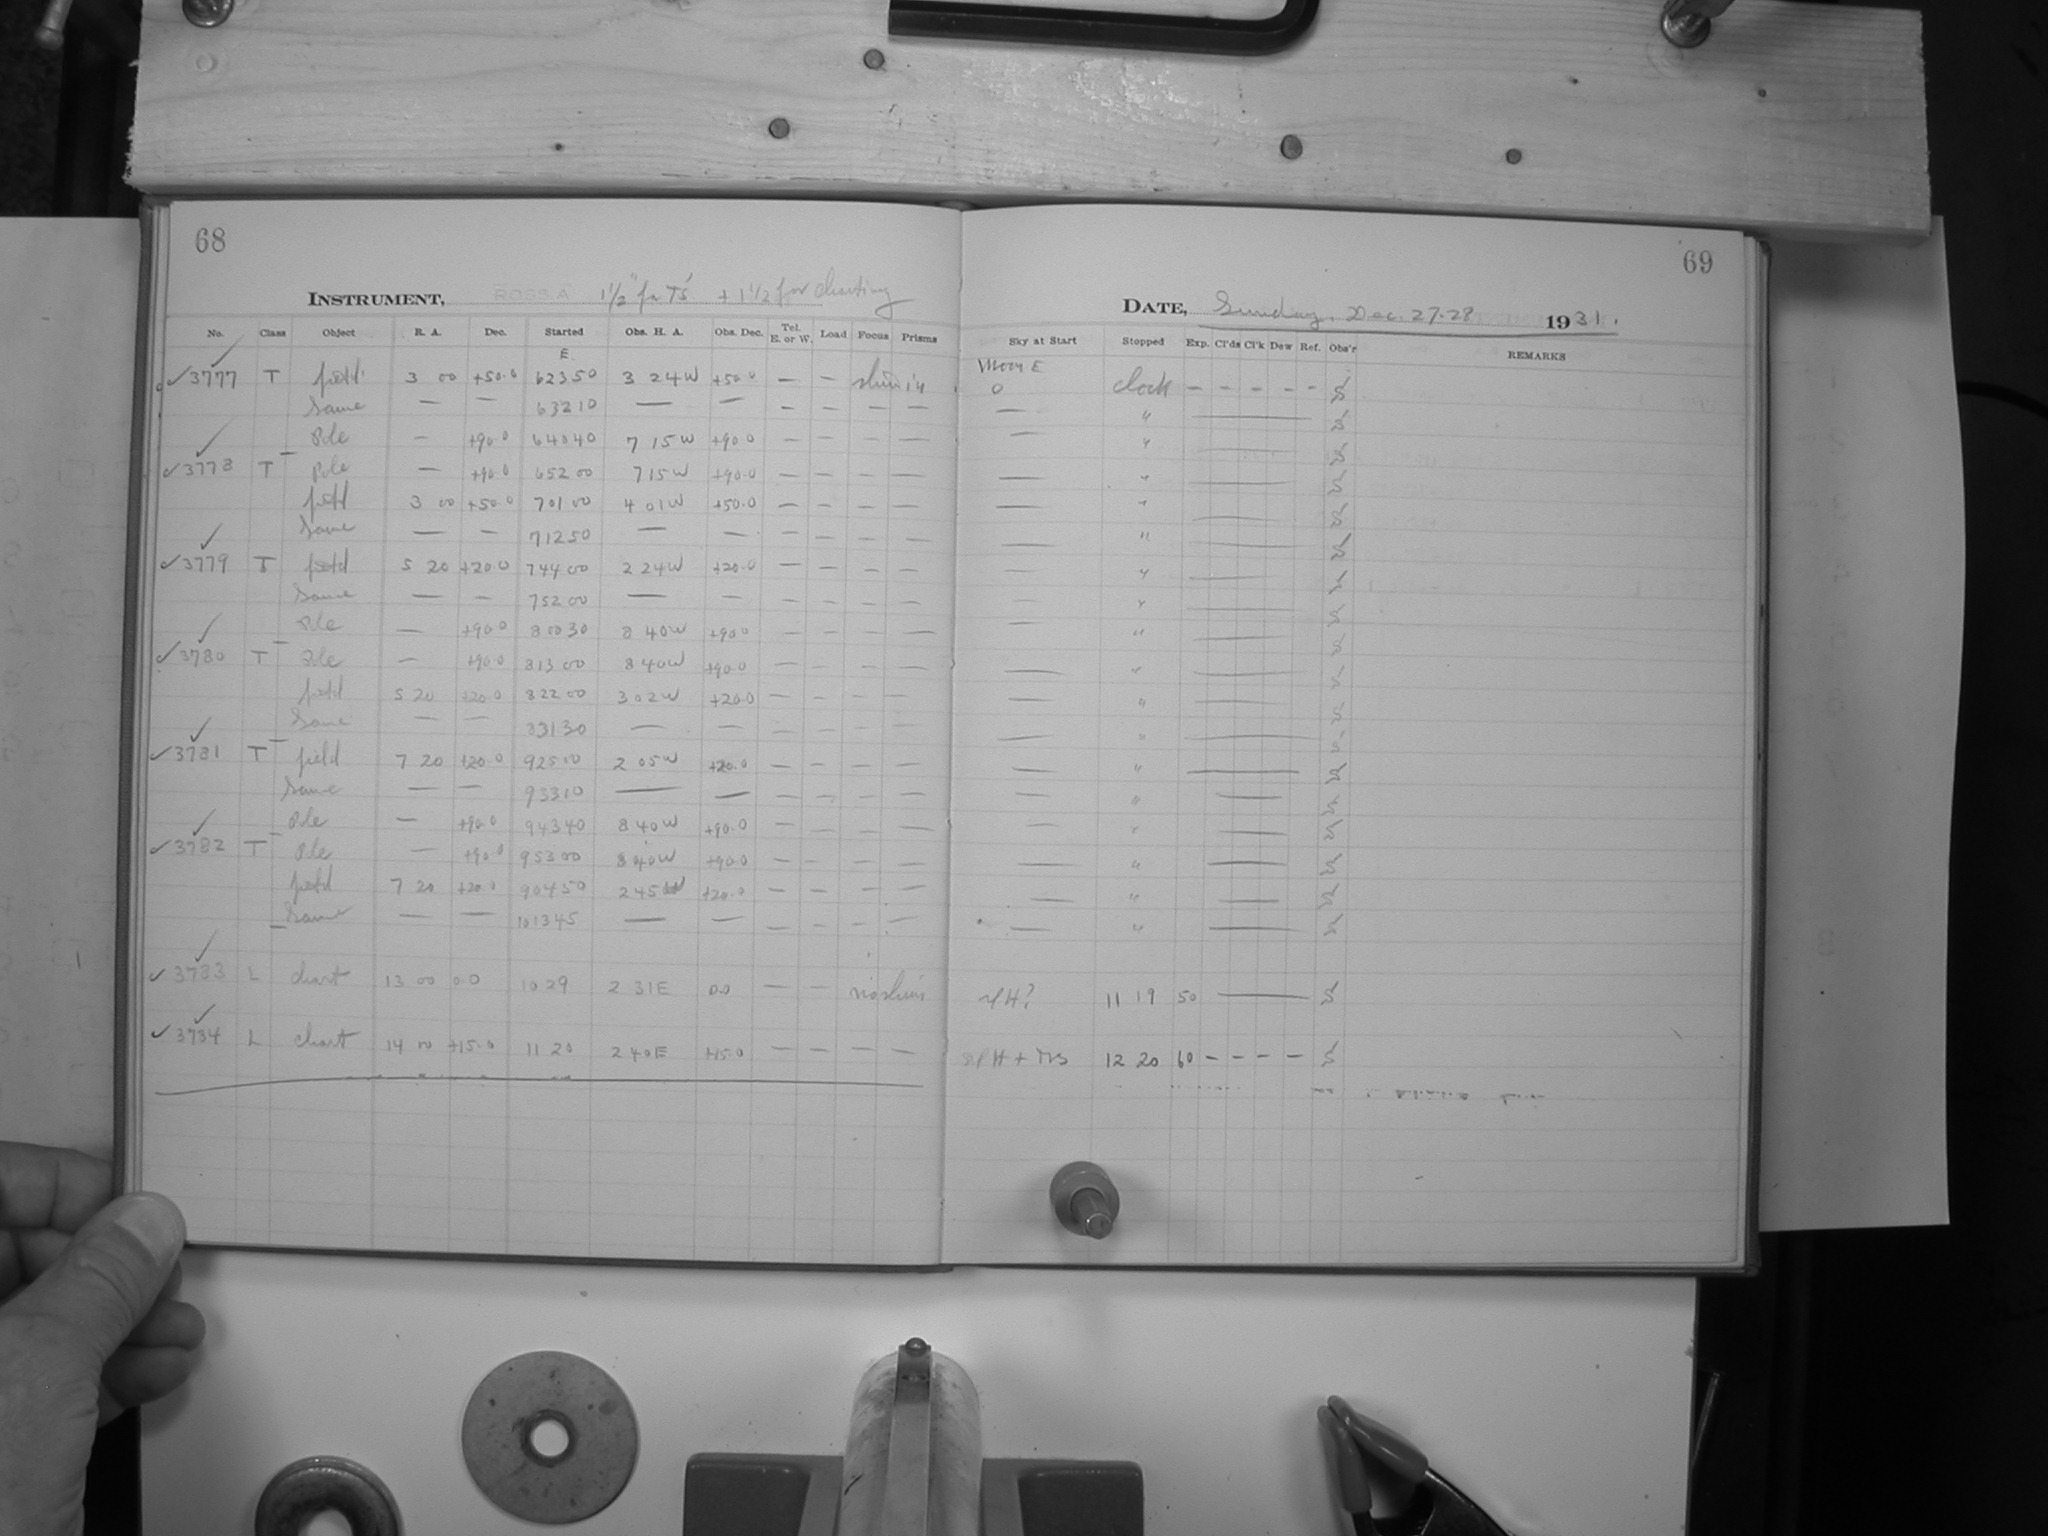 68
INSTRUMENT, ROSS A 1½" for T's + 1½ for charting
No. Class Object R. A. Dec. Started Obs. H. A. Obs. Dec. Tel. E. or W. Load Focus Prisms
E
✓3777 T field 3 00 +50.0 62350 3 24W +50.0 — — shim in
Same — — 63210 — — — — — —
Pole — +90.0 64040 7 15W +90.0 — — — —
✓3778 T Pole — +90.0 65200 7 15W +90.0 — — — —
field 3 00 +50.0 70100 4 01W +50.0 — — — —
Same — — 71250 — — — — — —
✓3779 T field 5 20 +20.0 74400 2 24W +20.0 — — — —
Same — — 75200 — — — — — —
Pole — +90.0 80030 8 40W +90.0 — — — —
✓3780 T Pole — +90.0 81300 8 40W +90.0 — — — —
field 5 20 +20.0 82200 3 02W +20.0 — — — —
Same — — 83130 — — — — — —
✓3781 T field 7 20 +20.0 92500 2 05W +20.0 — — — —
Same — — 93310 — — — — — —
Pole — +90.0 94340 8 40W +90.0 — — — —
✓3782 T Pole — +90.0 95300 8 40W +90.0 — — — —
field 7 20 +20.0 90450 2 45W +20.0 — — — —
Same — — 101345 — — — — — —
✓3783 L chart 13 00 0.0 10 29 2 31E 0.0 — — no shim
✓3784 L chart 14 00 +15.0 11 20 2 40E +15.0 — — — —
69
DATE, Sunday, Dec. 27-28 1931.
Sky at Start Stopped Exp. Cl'ds Cl'k Dew Ref. Obs'r REMARKS
Moon E
0 clock - - - - - -
— "
— "
— "
— "
— "
— "
— "
— "
— "
— "
— "
— "
— "
— "
— "
— "
— "
H? 11 19 50 —
H + 12 20 60 - - - -